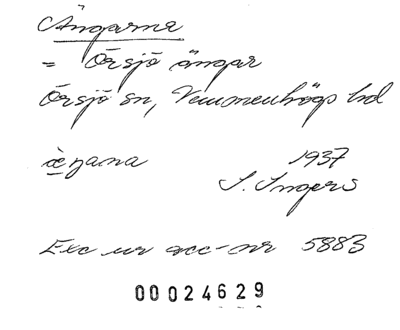 Ängarna
= Örsjö ängar
Örsjö sn, Vemmenhögs hd
ὰŋana 1937
I. Ingers
Exc ur acc-nr 5883
00024629